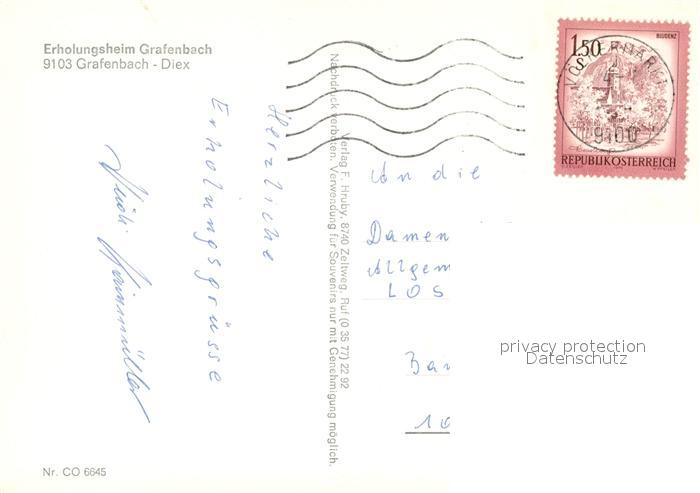 Erholungsheim Grafenbach
9103 Grafenbach - Diex
Herzliche
Erholungsgrüsse
Nr. CO 6645
Verlag F. Hruby, 8740 Zeltweg, Ruf (0 35 77) 22 92
Nachdruck verboten. Verwendung für Souvenirs nur mit Genehmigung möglich.
BLUDENZ
1.50
S
VÖLKERMARKT
9100
REPUBLIK ÖSTERREICH
An die
Damen
Allgem
LOS
privacy protection
Datenschutz
Bar
10